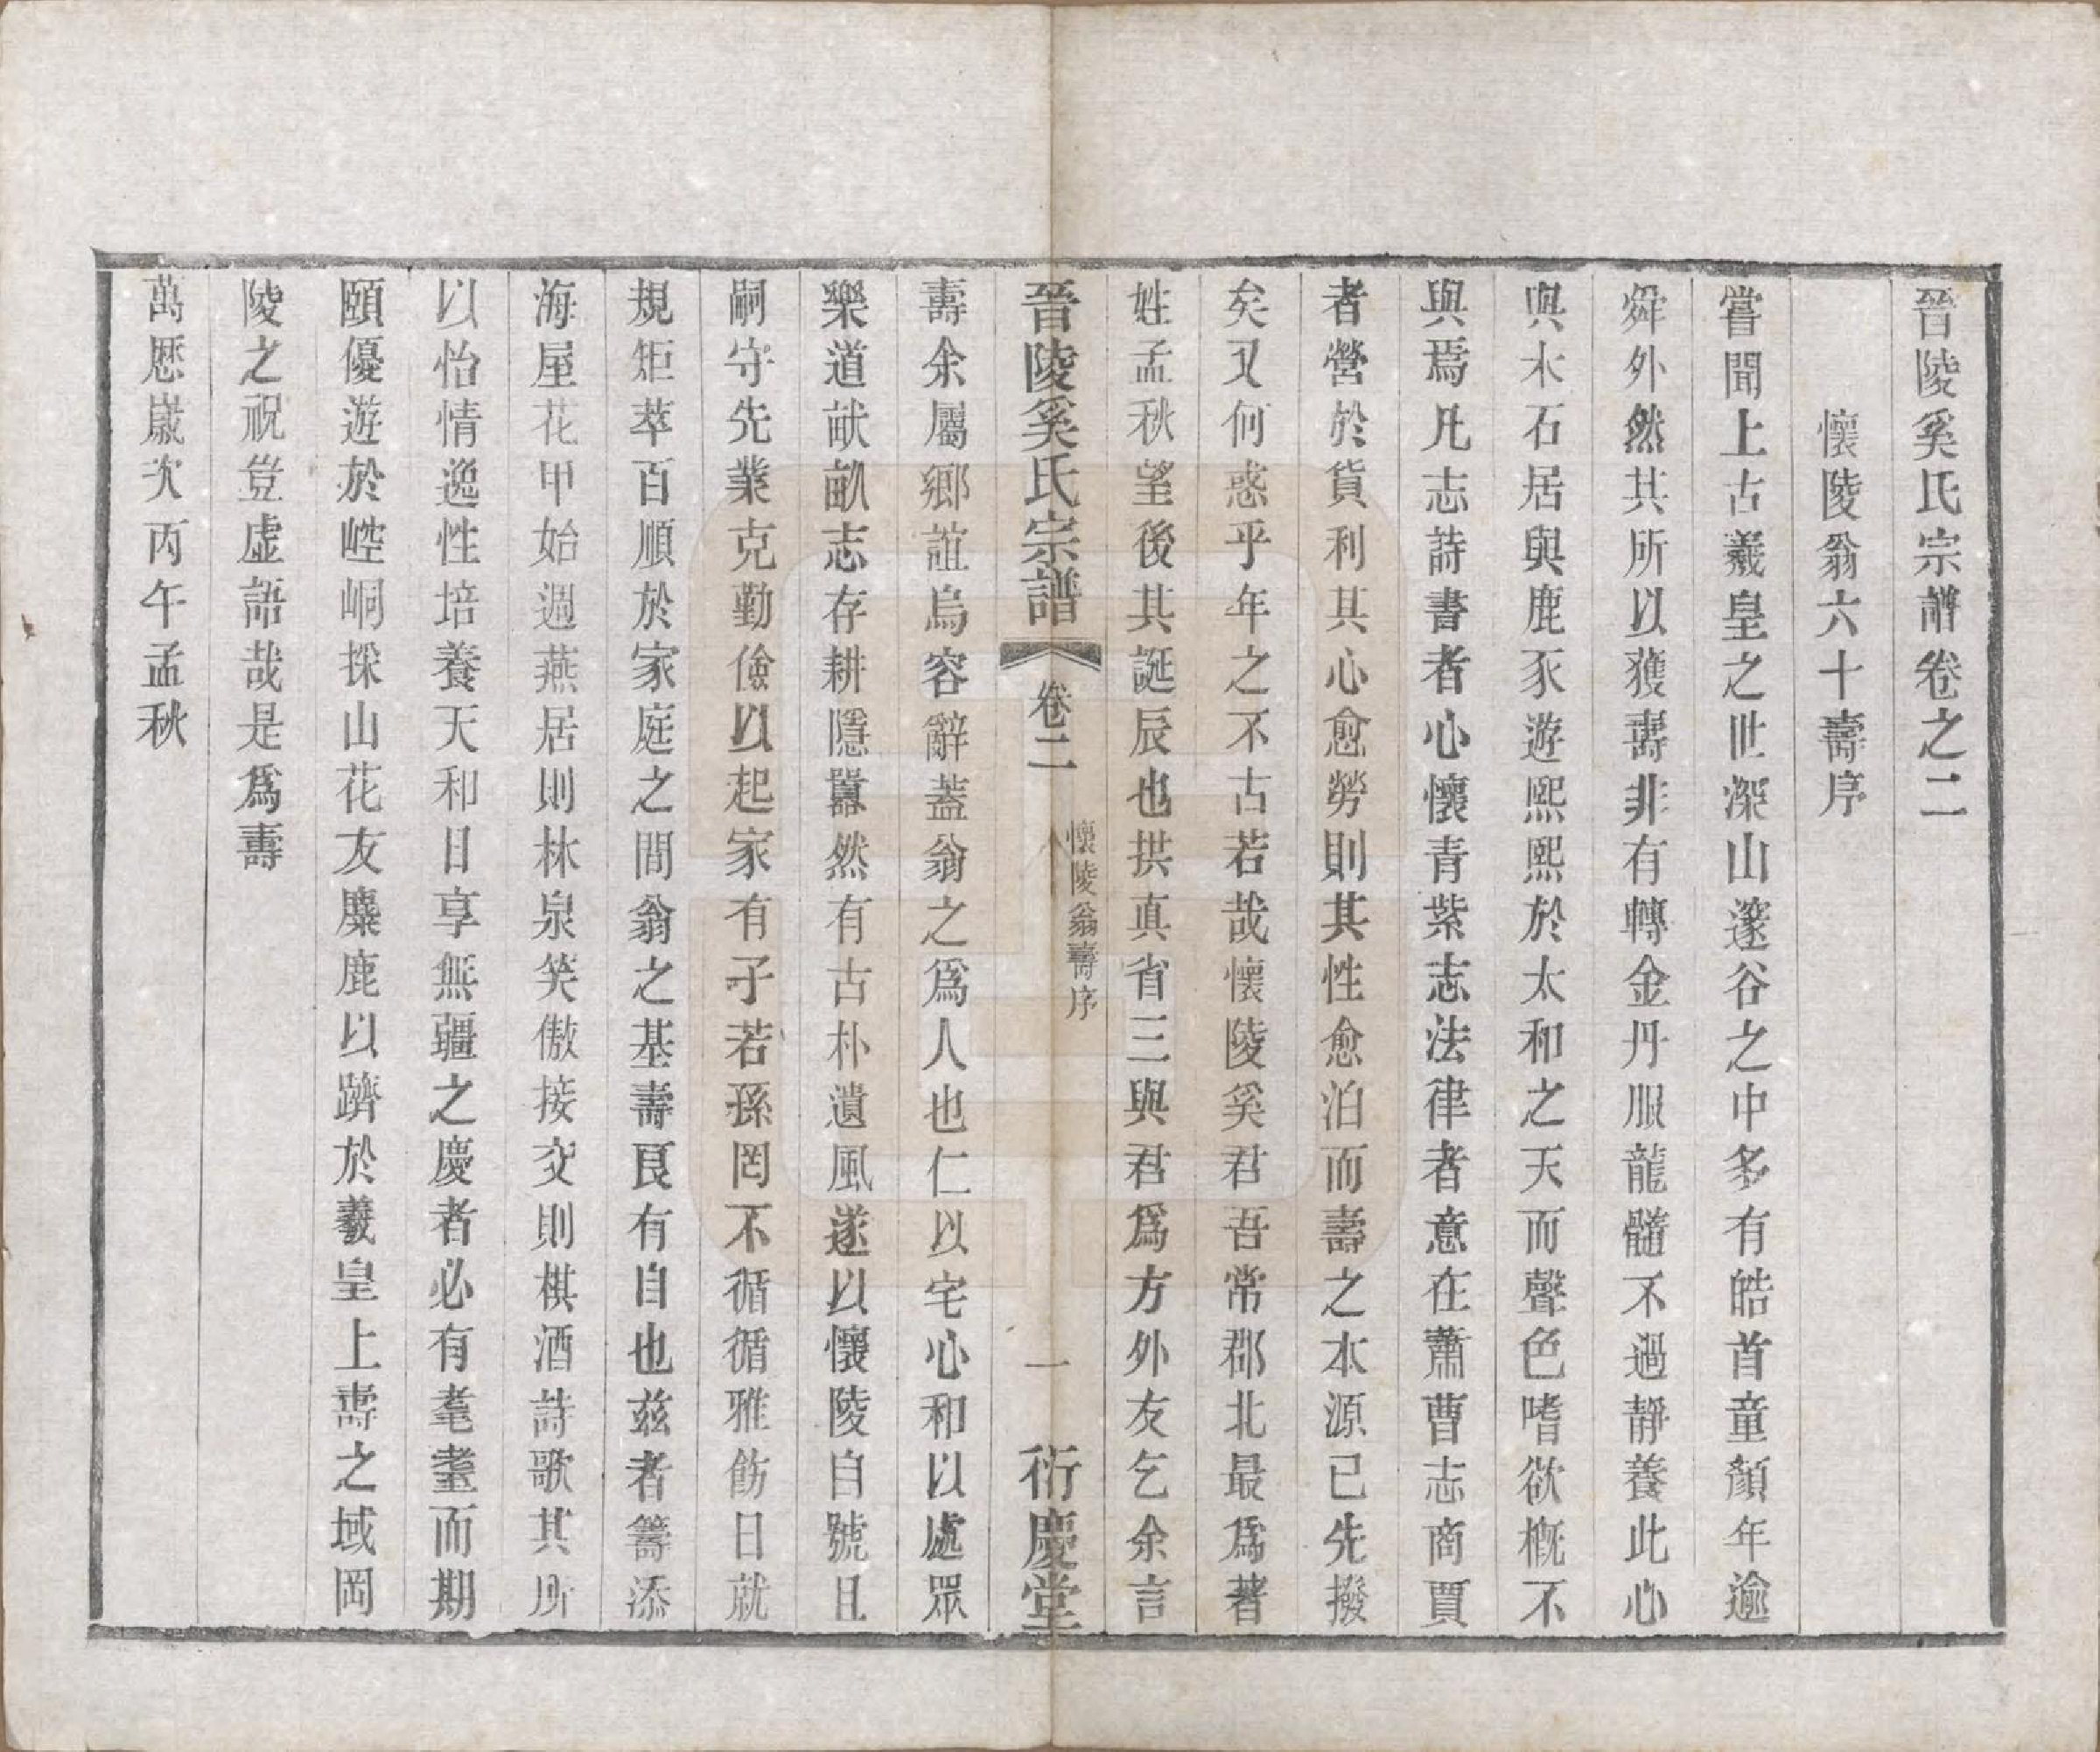 晉陵奚氏宗譜卷之二
懷陵翁六十壽序
嘗聞上古羲皇之世深山邃谷之中多有皓首童顏年逾
舜外然其所以獲壽非有轉金丹服龍髓不過靜養此心
與木石居與鹿豕遊熙熙於太和之天而聲色嗜欲概不
與焉凡志詩書者心懷青紫志法律者意在蕭曹志商賈
者營於貨利其心愈勞則其性愈泊而壽之本源已先撥
矣又何惑乎年之不古若哉懷陵奚君吾常郡北最爲著
姓孟秋望後其誕辰也拱真省三與君爲方外友乞余言
晉陵奚氏宗譜 卷二 懷陵翁壽序 一 衍慶堂
壽余屬鄉誼烏容辭蓋翁之爲人也仁以宅心和以處眾
樂道畎畝志存耕隱囂然有古朴遺風遂以懷陵自號且
嗣守先業克勤儉以起家有子若孫罔不循循雅飭日就
規矩萃百順於家庭之間翁之基壽艮有自也玆者籌添
海屋花甲始週燕居則林泉笑傲接交則棋酒詩歌其所
以怡情逸性培養天和日享無疆之慶者必有耄耋而期
頤優遊於崆峒採山花友麋鹿以躋於羲皇上壽之域岡
陵之祝豈虛語哉是爲壽
萬歷歲次丙午孟秋